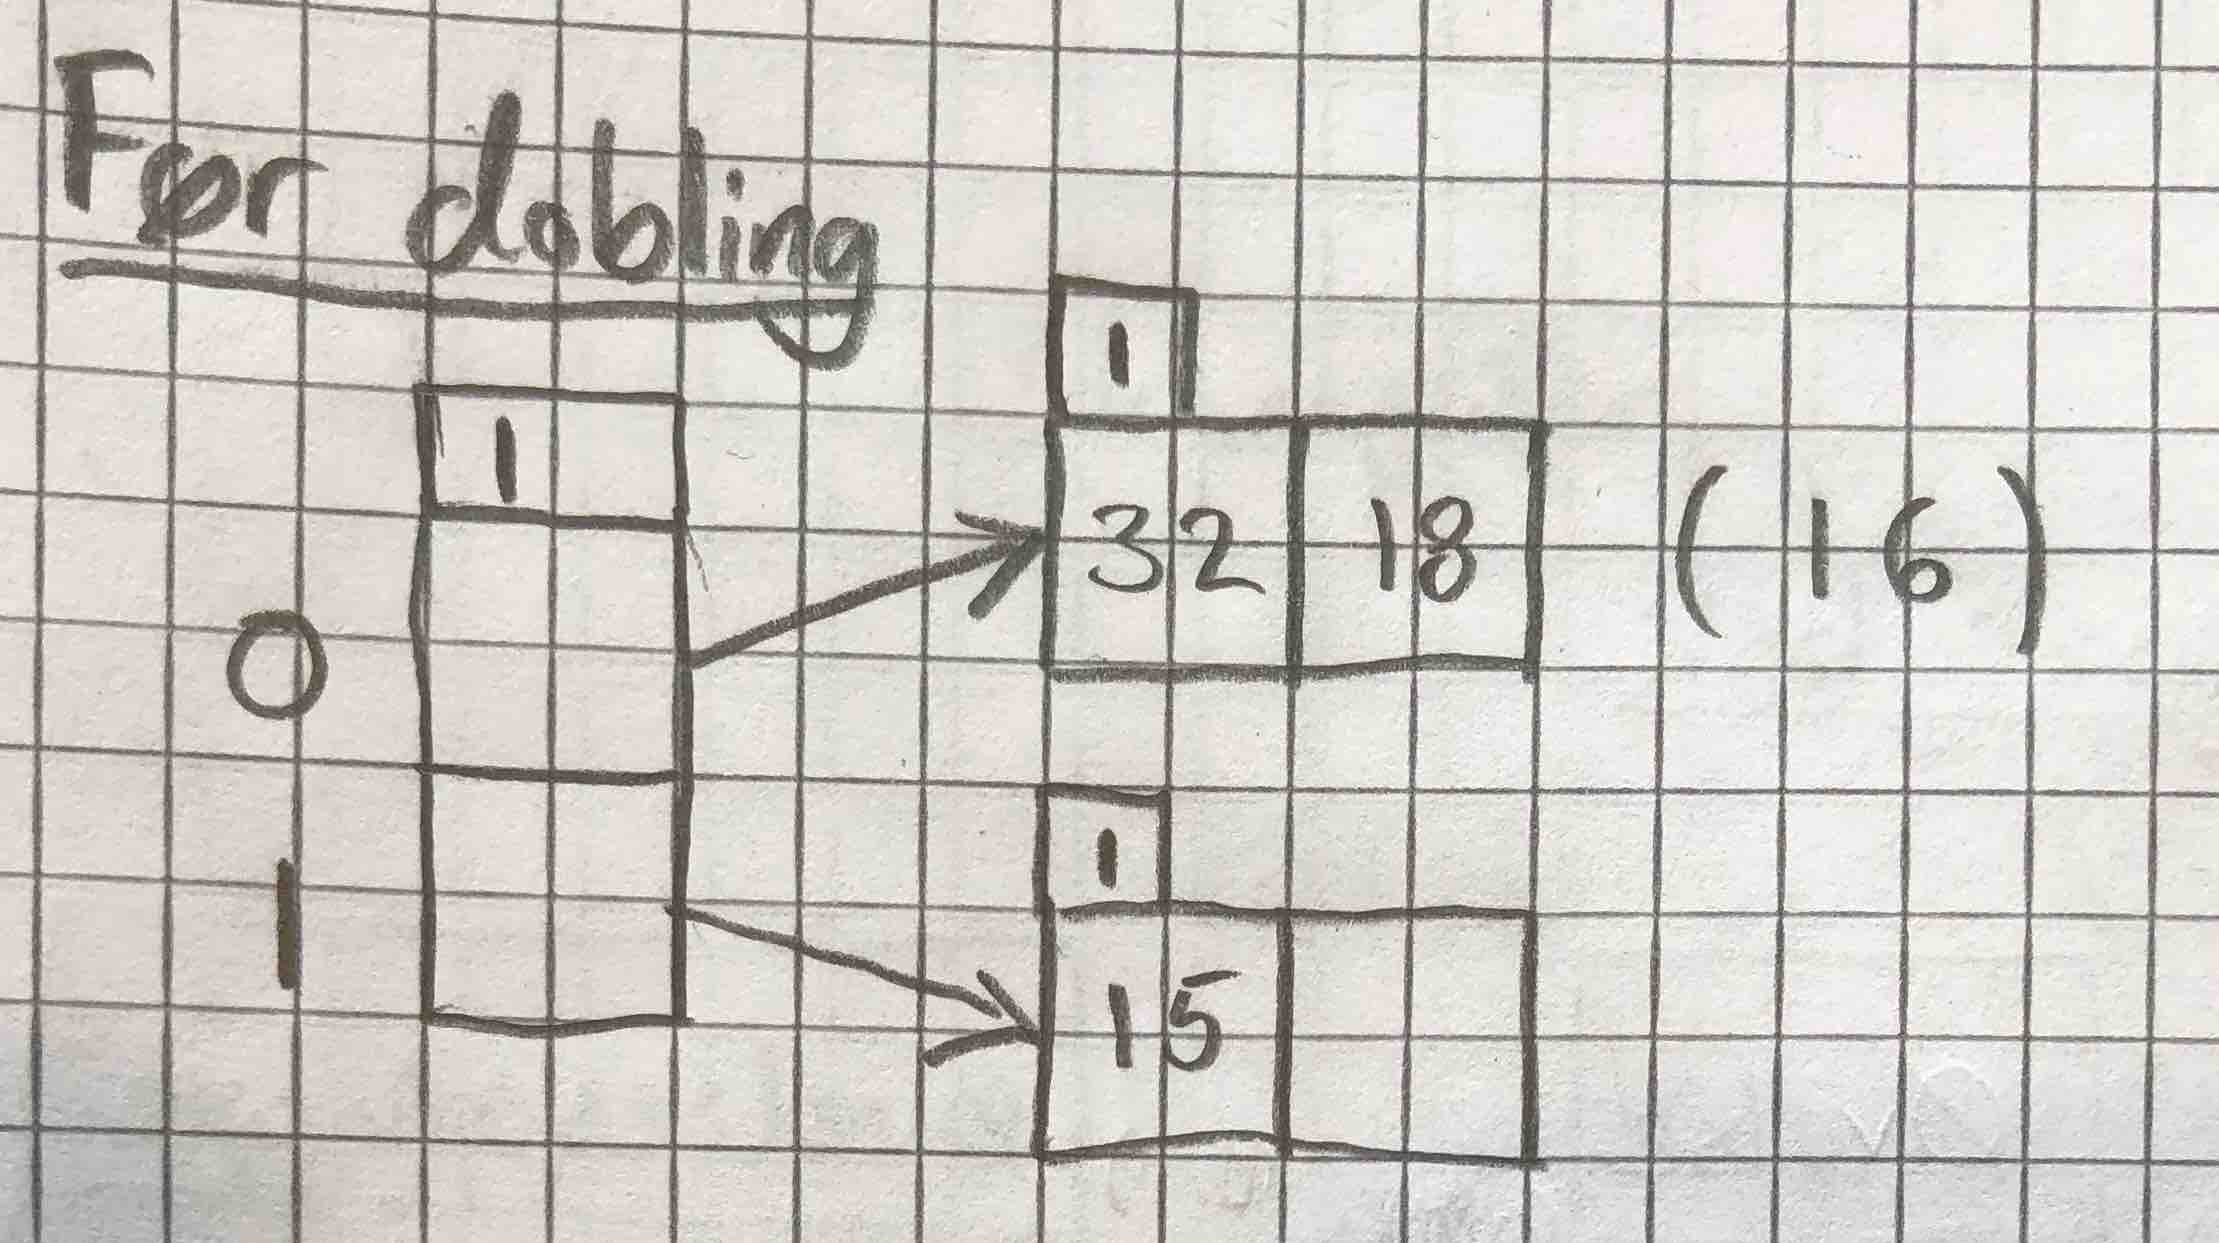 Før dobling
1
1
32 18 (16)
0
1
1
15